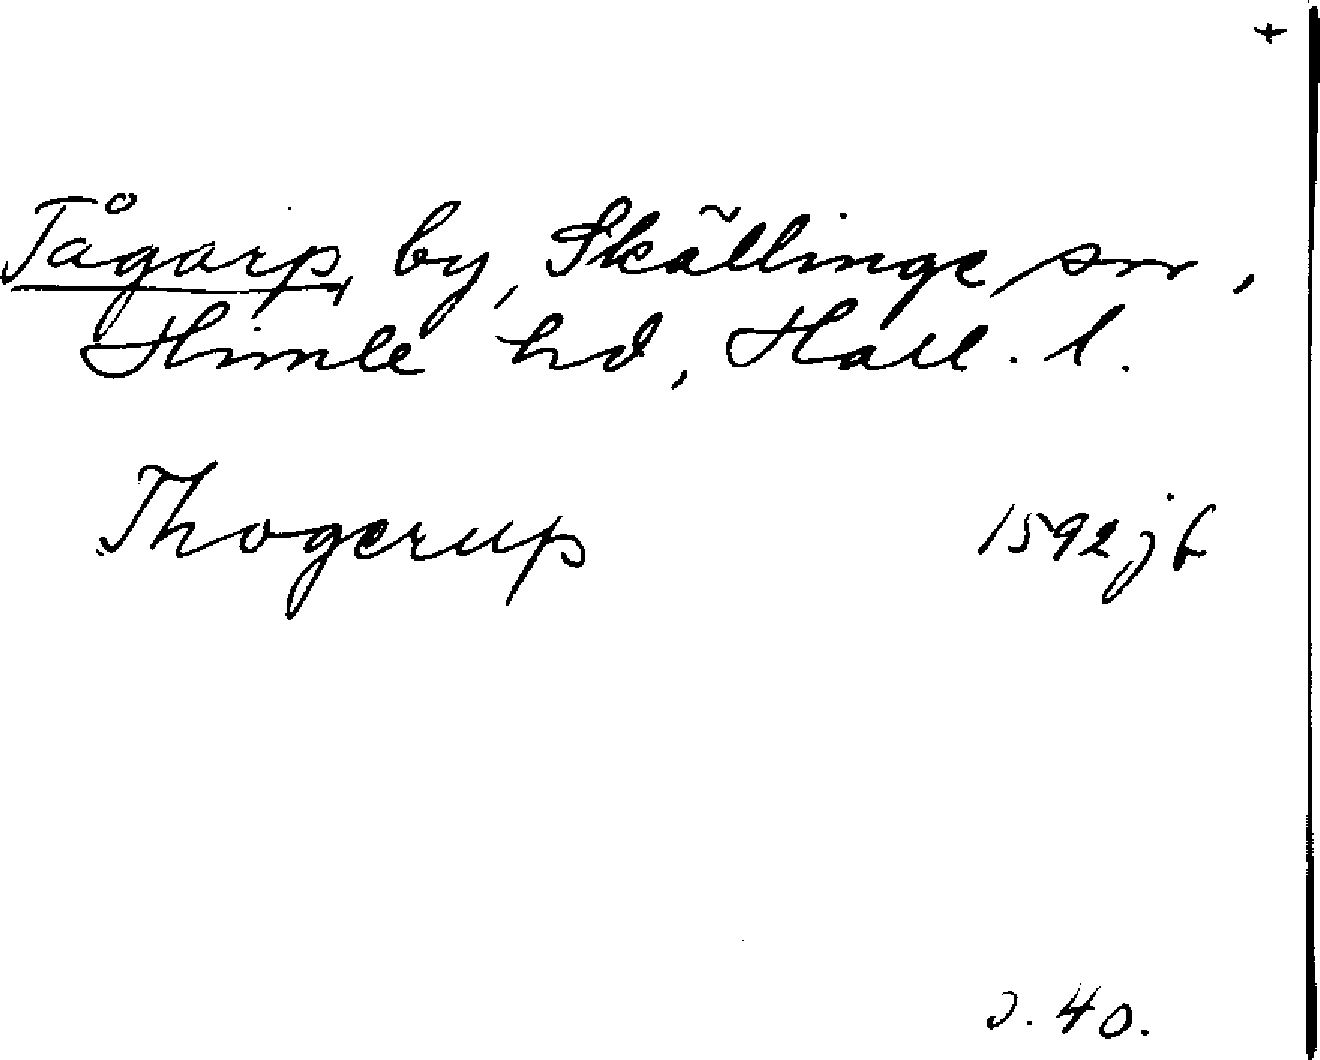 +
Tågarp, by, Skällinge sn,
Himle hd, Hall. l.
Thogerup 1592 jb
s. 40.